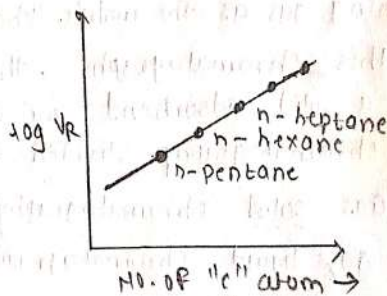 log VR
n-heptane
n-hexane
n-pentane
No. OF "c" atom →